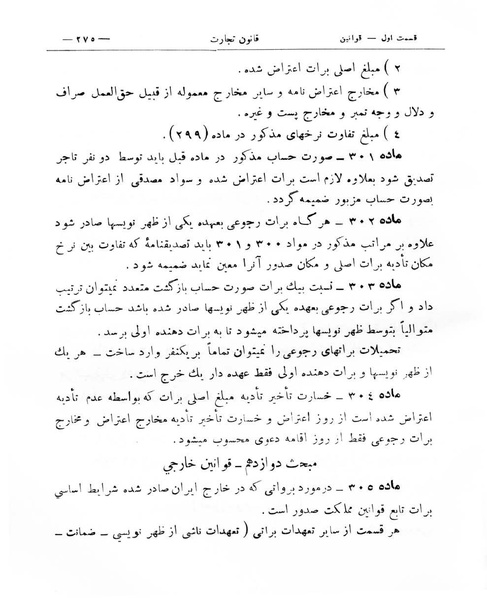 قسمت اول — قوانین قانون تجارت — ۲۷۵ —
۲ ) مبلغ اصلی برات اعتراض شده .
۳ ) مخارج اعتراض نامه و سایر مخارج معموله از قبیل حق‌العمل صراف
و دلال و وجه تمبر و مخارج پست و غیره .
٤ ) مبلغ تفاوت نرخهای مذکور در ماده (۲۹۹) .
ماده ۳۰۱ ــ صورت حساب مذکور در ماده قبل باید توسط دو نفر تاجر
تصدیق شود بعلاوه لازم است برات اعتراض شده و سواد مصدقی از اعتراض نامه
بصورت حساب مزبور ضمیمه گردد .
ماده ۳۰۲ ــ هر گاه برات رجوعی بعهده یکی از ظهر نویسها صادر شود
علاوه بر مراتب مذکور در مواد ۳۰۰ و ۳۰۱ باید تصدیقنامۀ که تفاوت بین نرخ
مکان تأدیه برات اصلی و مکان صدور آنرا معین نماید ضمیمه شود .
ماده ۳۰۳ ــ نسبت بیك برات صورت حساب بازگشت متعدد نمیتوان ترتیب
داد و اگر برات رجوعی بعهده یکی از ظهر نویسها صادر شده باشد حساب بازگشت
متوالیاً بتوسط ظهر نویسها پرداخته میشود تا به برات دهنده اولی برسد .
تحمیلات براتهای رجوعی را نمیتوان تماماً بریکنفر وارد ساخت ــ هر یك
از ظهر نویسها و برات دهنده اولی فقط عهده دار یك خرج است .
ماده ۳۰٤ ــ خسارت تأخیر تأدیه مبلغ اصلی برات که بواسطه عدم تأدیه
اعتراض شده است از روز اعتراض و خسارت تأخیر تأدیه مخارج اعتراض و مخارج
برات رجوعی فقط از روز اقامه دعوی محسوب میشود .
مبحث دوازدهم ــ قوانین خارجي
ماده ۳۰۵ ــ درمورد برواتی که در خارج ایران صادر شده شرایط اساسي
برات تابع قوانین مملکت صدور است .
هر قسمت از سایر تعهدات براتی ( تعهدات ناشی از ظهر نویسي ــ ضمانت ــ